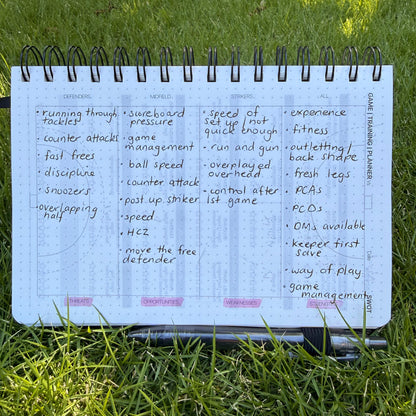 DEFENDERS:
• running through tackles
• counter attacks
• fast frees
• discipline
• snoozers
• overlapping half
THREATS
MIDFIELD
• scoreboard pressure
• game management
• ball speed
• counter attack
• post up striker
• speed
• HCZ
• move the free defender
OPPORTUNITIES
STRIKERS
• speed of set up / not quick enough
• run and gun
• overplayed overhead
• control after 1st game
WEAKNESSES
ALL
• experience
• fitness
• outletting / back shape
• fresh legs
• PCAs
• PCDs
• OMs available
• keeper first save
• way of play
• game management
GAME | TRAINING | PLANNER
SWOT